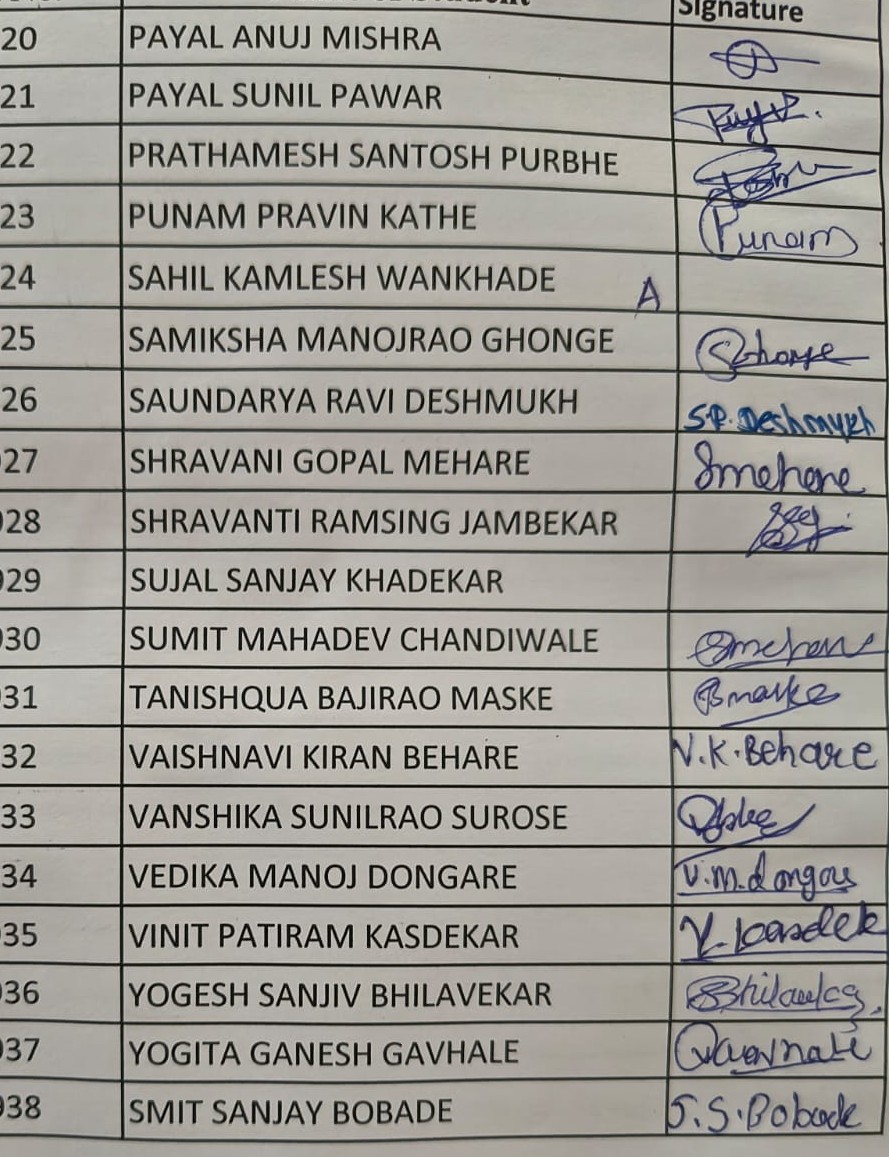 Signature
20 PAYAL ANUJ MISHRA
21 PAYAL SUNIL PAWAR
22 PRATHAMESH SANTOSH PURBHE
23 PUNAM PRAVIN KATHE Punam
24 SAHIL KAMLESH WANKHADE A
25 SAMIKSHA MANOJRAO GHONGE
26 SAUNDARYA RAVI DESHMUKH S.R. Deshmukh
27 SHRAVANI GOPAL MEHARE Smehare
28 SHRAVANTI RAMSING JAMBEKAR
29 SUJAL SANJAY KHADEKAR
30 SUMIT MAHADEV CHANDIWALE
31 TANISHQUA BAJIRAO MASKE Bmaske
32 VAISHNAVI KIRAN BEHARE V.K.Behare
33 VANSHIKA SUNILRAO SUROSE
34 VEDIKA MANOJ DONGARE
35 VINIT PATIRAM KASDEKAR
36 YOGESH SANJIV BHILAVEKAR
37 YOGITA GANESH GAVHALE
38 SMIT SANJAY BOBADE S.S.Bobade